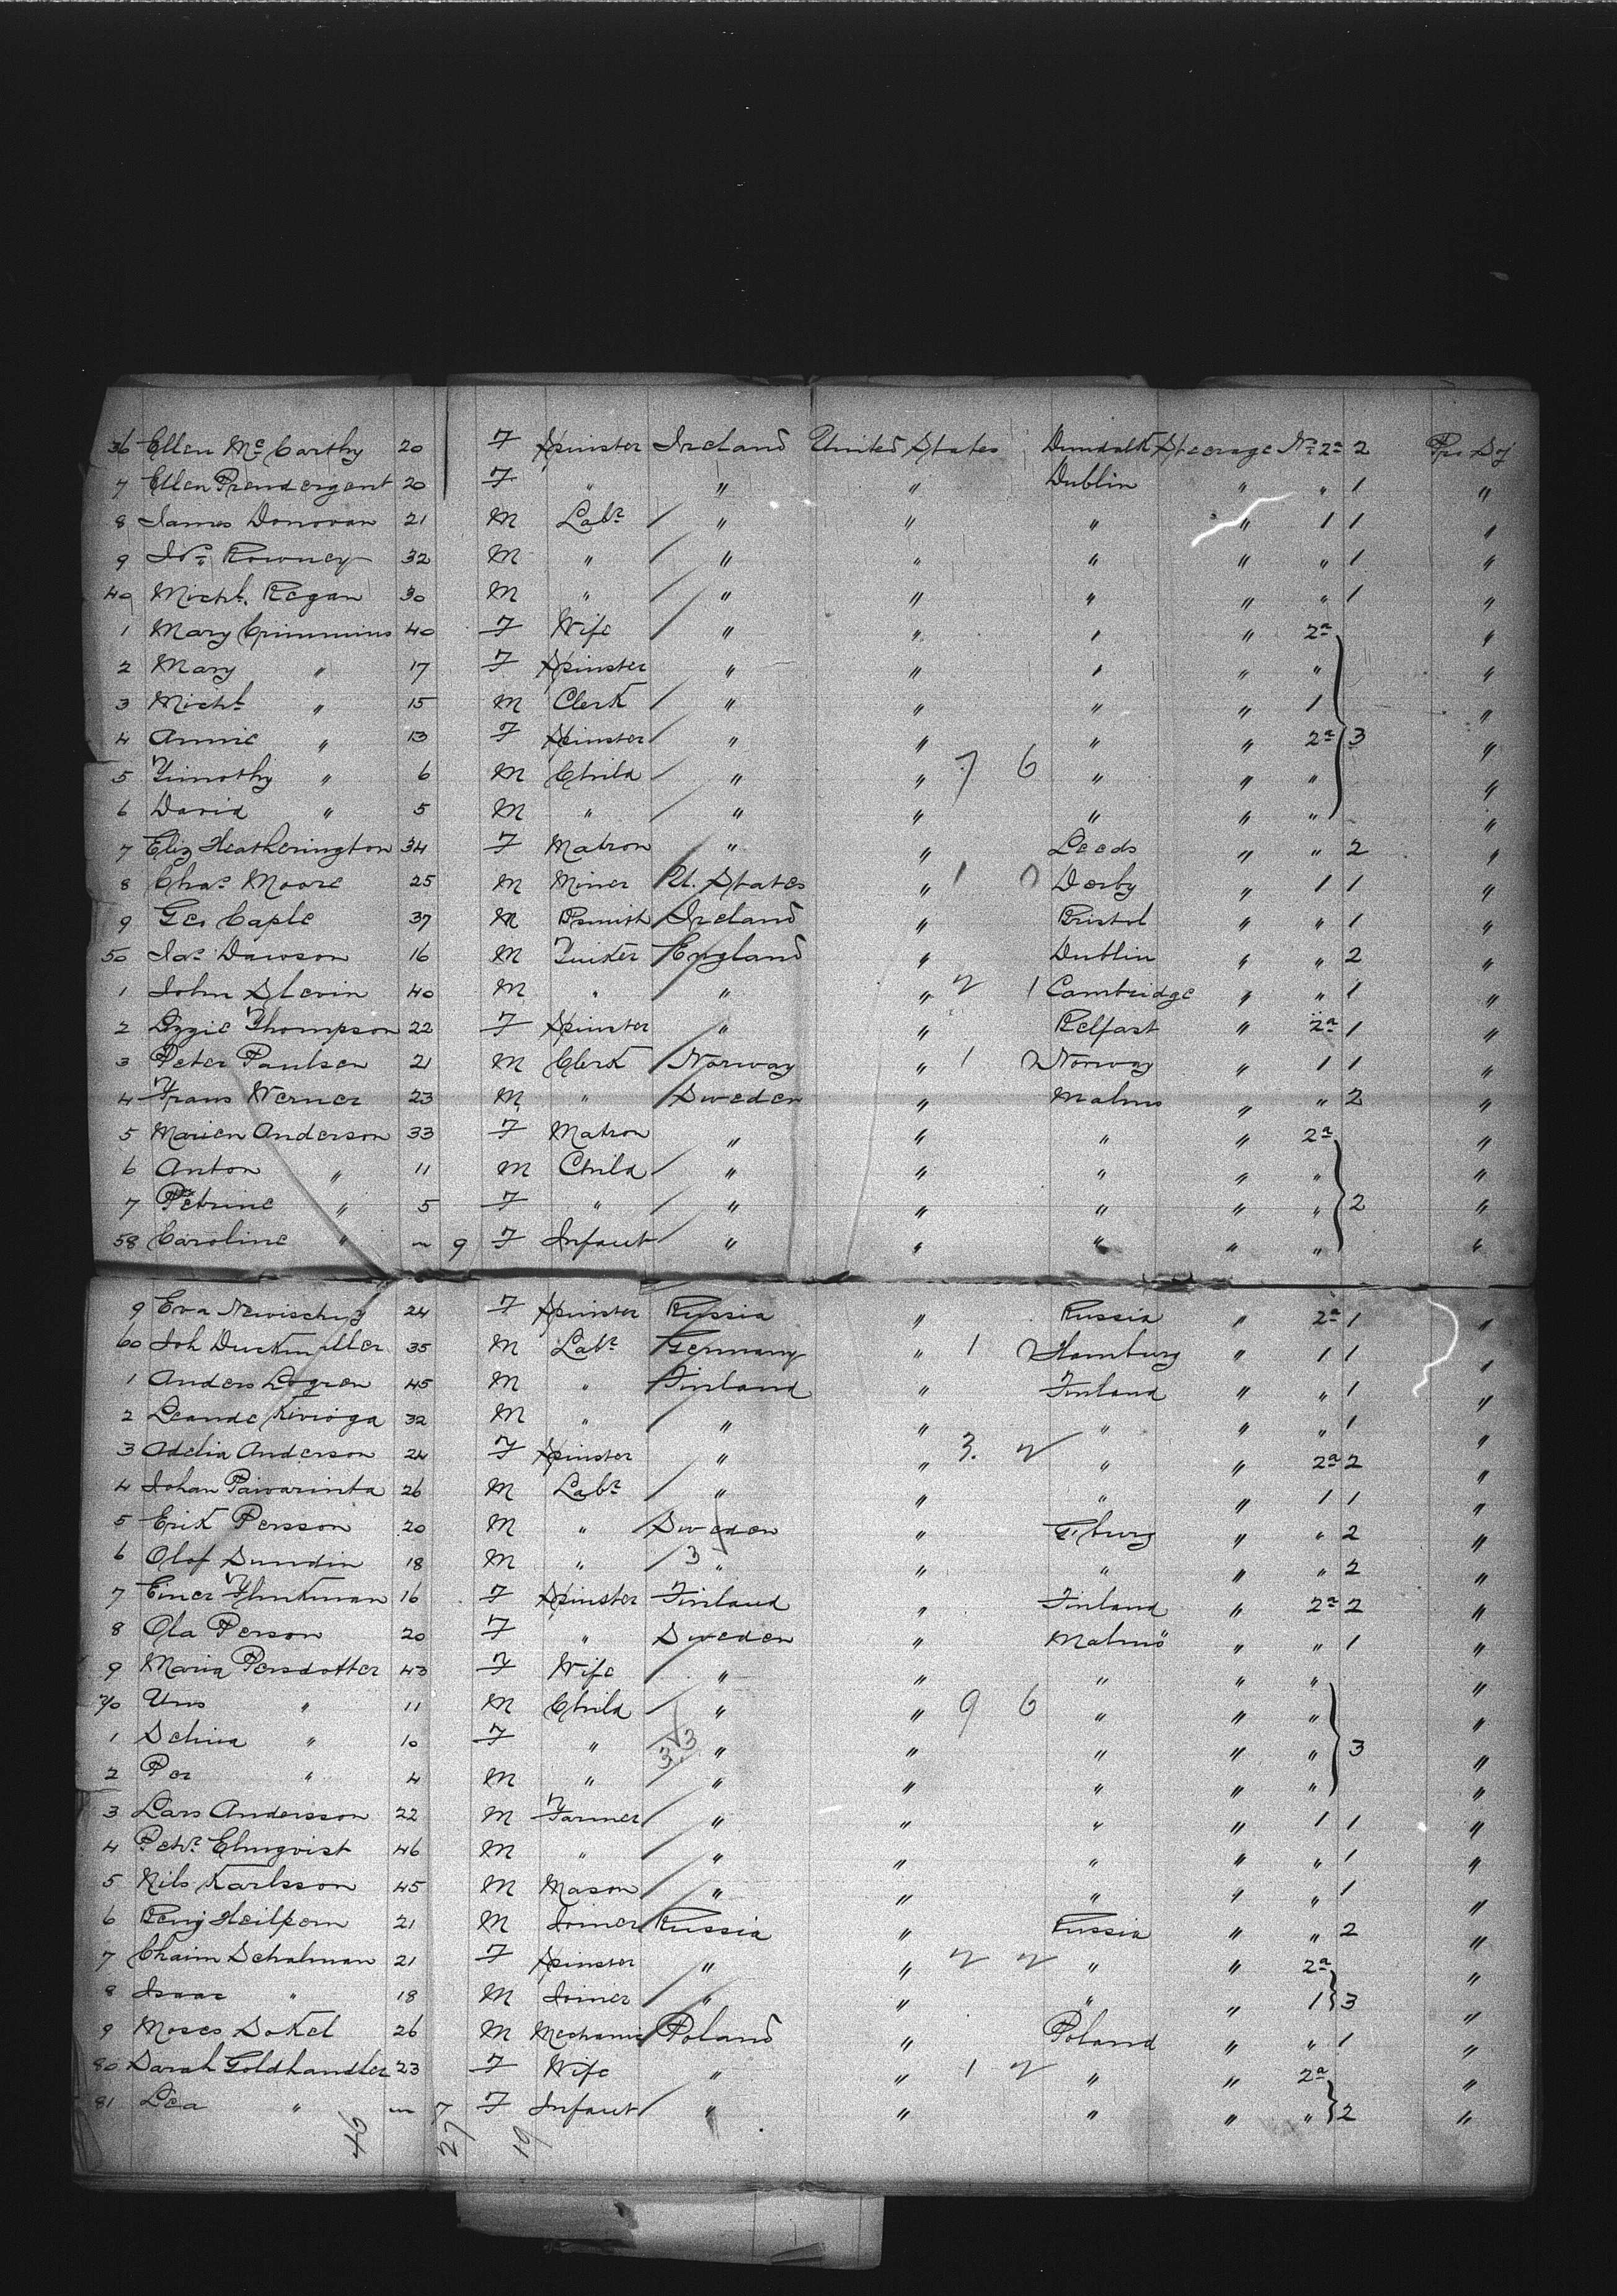 36 Ellen Mc Carthy 20 F Spinster Ireland United States Dundalk Steerage No 2a 2 Pro Soj
7 Ellen Prendergast 20 F " " " Dublin " " 1 "
8 James Donovan 21 M Labr " " " " 1 1 "
9 Jno Rowney 32 M " " " " " " 1 "
40 Michl. Regan 30 M " " " " " " 1 "
1 Mary Crimmins 40 F Wife " " " " 2a "
2 Mary " 17 F Spinster " " " " " "
3 Michl " 15 M Clerk " " " " 1 "
4 Annie " 13 F Spinster " " " " 2a 3 "
5 Timothy " 6 M Child " " 7 6 " " " "
6 David " 5 M " " " " " " "
7 Eliz Heatherington 34 F Matron " " Leeds " " 2 "
8 Chas Moore 25 M Miner U. States " 1 0 Derby " 1 1 "
9 Geo Caple 37 M Bsmith Ireland " Bristol " " 1 "
50 Jas Dawson 16 M England " Dublin " " 2 "
1 John Slevin 40 M " " " 2 1 Cambridge " " 1 "
2 Lizzie Thompson 22 F Spinster " " Belfast " 2a 1 "
3 Peter Paulsen 21 M Clerk Norway " 1 Norway " 1 1 "
4 Frans Werner 23 M " Sweden " Malmo " " 2 "
5 Marien Anderson 33 F Matron " " " " 2a "
6 Anton " 11 M Child " " " " " "
7 Petrine " 5 F " " " " " " 2 "
58 Caroline " 9 F Infant " " " " " "
9 Eva 24 F Spinster Russia " Russia " 2a 1 "
60 Joh 35 M Labr Germany " 1 Hamburg " 1 1 "
1 Anders Logren 45 M " Finland " Finland " " 1 "
2 Leande Kivioga 32 M " " " " " " 1 "
3 Adelia Anderson 24 F Spinster " " 3. 2 " " 2a 2 "
4 Johan Paivarinta 26 M Labr " " " " 1 1 "
5 Erik Persson 20 M " Sweden " G'burg " " 2 "
6 Olof Sundin 18 M " 3 " " " " " 2 "
7 16 F Spinster Finland " Finland " 2a 2 "
8 Ola Person 20 F " Sweden " Malmö " " 1 "
9 Maria Persdotter 43 F Wife " " " " " "
70 " 11 M Child " " 9 6 " " " "
1 " 10 F " 3.3 " " " " " 3 "
2 Per " 4 M " " " " " " "
3 Lars Andersson 22 M Farmer " " " " 1 1 "
4 Petr Elmqvist 46 M " " " " " " 1 "
5 Nils Karlsson 45 M Mason " " " " " 1 "
6 Benj Heilpern 21 M Joiner Russia " Russia " " 2 "
7 Chaim Schalman 21 F Spinster " " 2 2 " " 2a "
8 Isaac " 18 M Joiner " " " " 1 3 "
9 Moses Sokel 26 M Mechanic Poland " Poland " " 1 "
80 Sarah Goldhandler 23 F Wife " " 1 2 " " 2a "
81 Lea " 7 F Infant " " " " " 2 "
46 27 19